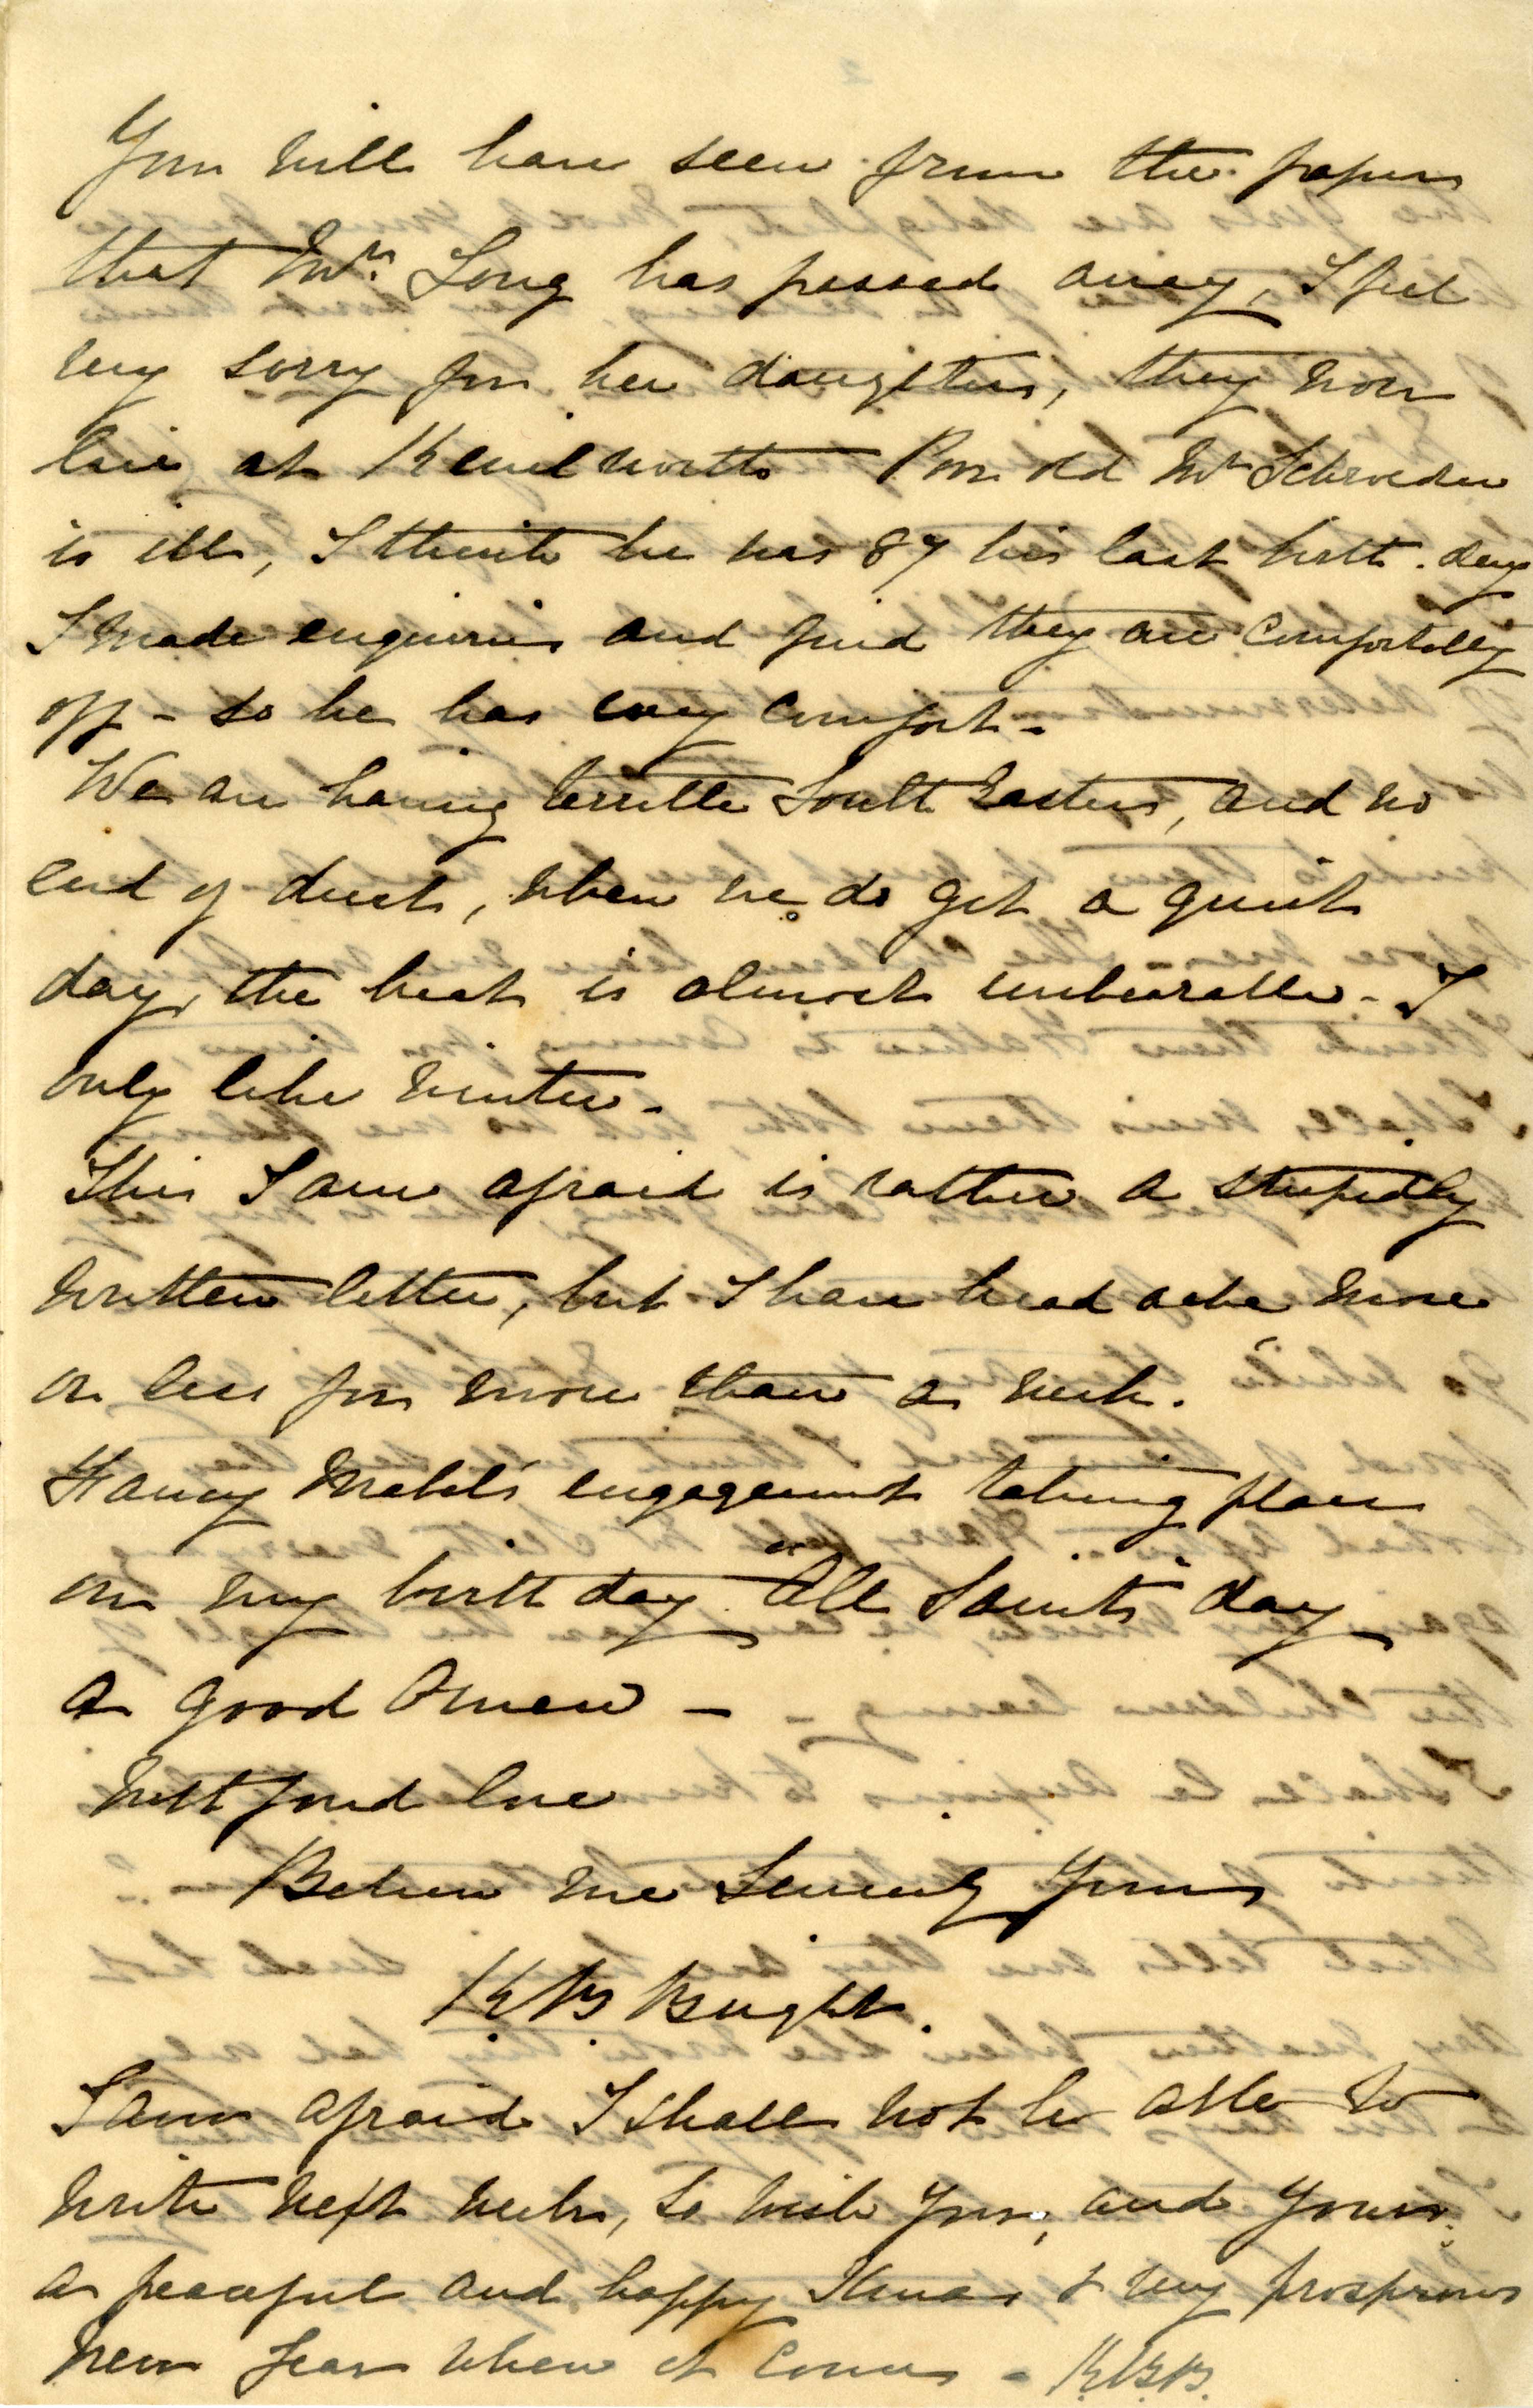 You will have seen from the papers
that Mrs. Long has passed away, I feel
very sorry for her daughters, they now
live at Kenilworth – Poor old Mr Schroeder
is ill, I think he was 87 his last birth-day
I made enquiries and find they are comfortably
off – so he has every comfort –
We are having terrible South Easters, and no
end of dust, when we do get a quiet
day, the heat is almost unbearable – I
only like winter –
This I am afraid is rather a stupidly
written letter, but I have head ache more
or less for more than a week.
Fancy Mabel's engagement taking place
on my birth day "All Saints" day
a good Omen –
With fond love
Believe me Sincerely Yours
K B Bright.
I am afraid I shall not be able to
write next week, so wish you, and yours
a peaceful and happy Xmas & very prosperous
New Year when it comes – K.B.B.